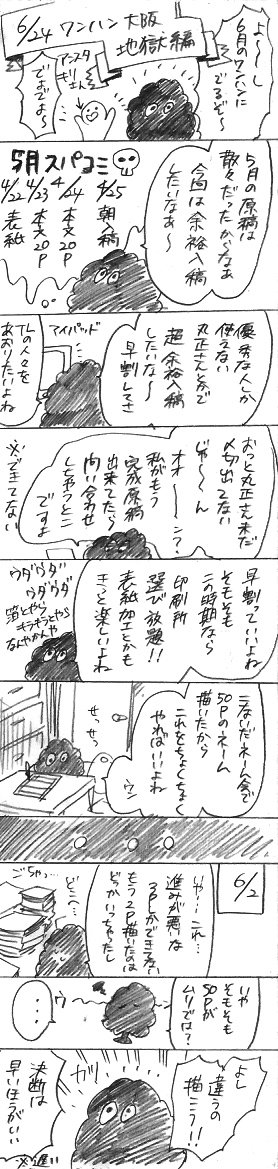 6/24 ワンハン大阪
地獄編
よ〜し
6月のワンハンに
でるぞ〜
でよでよ〜
5月の原稿は
散々だったからなあ
今回は余裕入稿
したいなあ〜
5月スパコミ
4/25 朝入稿
4/24 本文20P
4/23 本文20P
4/22 表紙
優秀な人しか
使えない
丸正さんで
超余裕入稿
したいな〜
早割してさ
アイパッド
TLの人々を
あおりたいよね
おっと丸正さん未だ
〆切出てない
じゃ〜ん
オオ〜ン?
私がもう
完成原稿
出来てたら
問い合わせ
しちゃうとこ
ですよ
※できてない
早割っていいよね
そもそも
この時期なら
印刷所
選び放題!!
表紙加工とかも
きっと楽しいよね
ウダウダ
ウダウダ
箔とやら
キラキラとやら
なんやかんや
こないだネーム会で
50Pのネーム
描いたから
これをちょくちょく
やればいいよね
ウン
せっせっ
6/2
いやー これ…
進みが悪いな
3Pしかできてない
もう2P描いたのは
どっかいっちゃったし
どこへ…
ごちゃっ…
いや
そもそも
50Pが
ムリでは?
ウ
・・・
よし
違うの
描こう!!
ガッ
決断は
早いほうがいい
※遅い